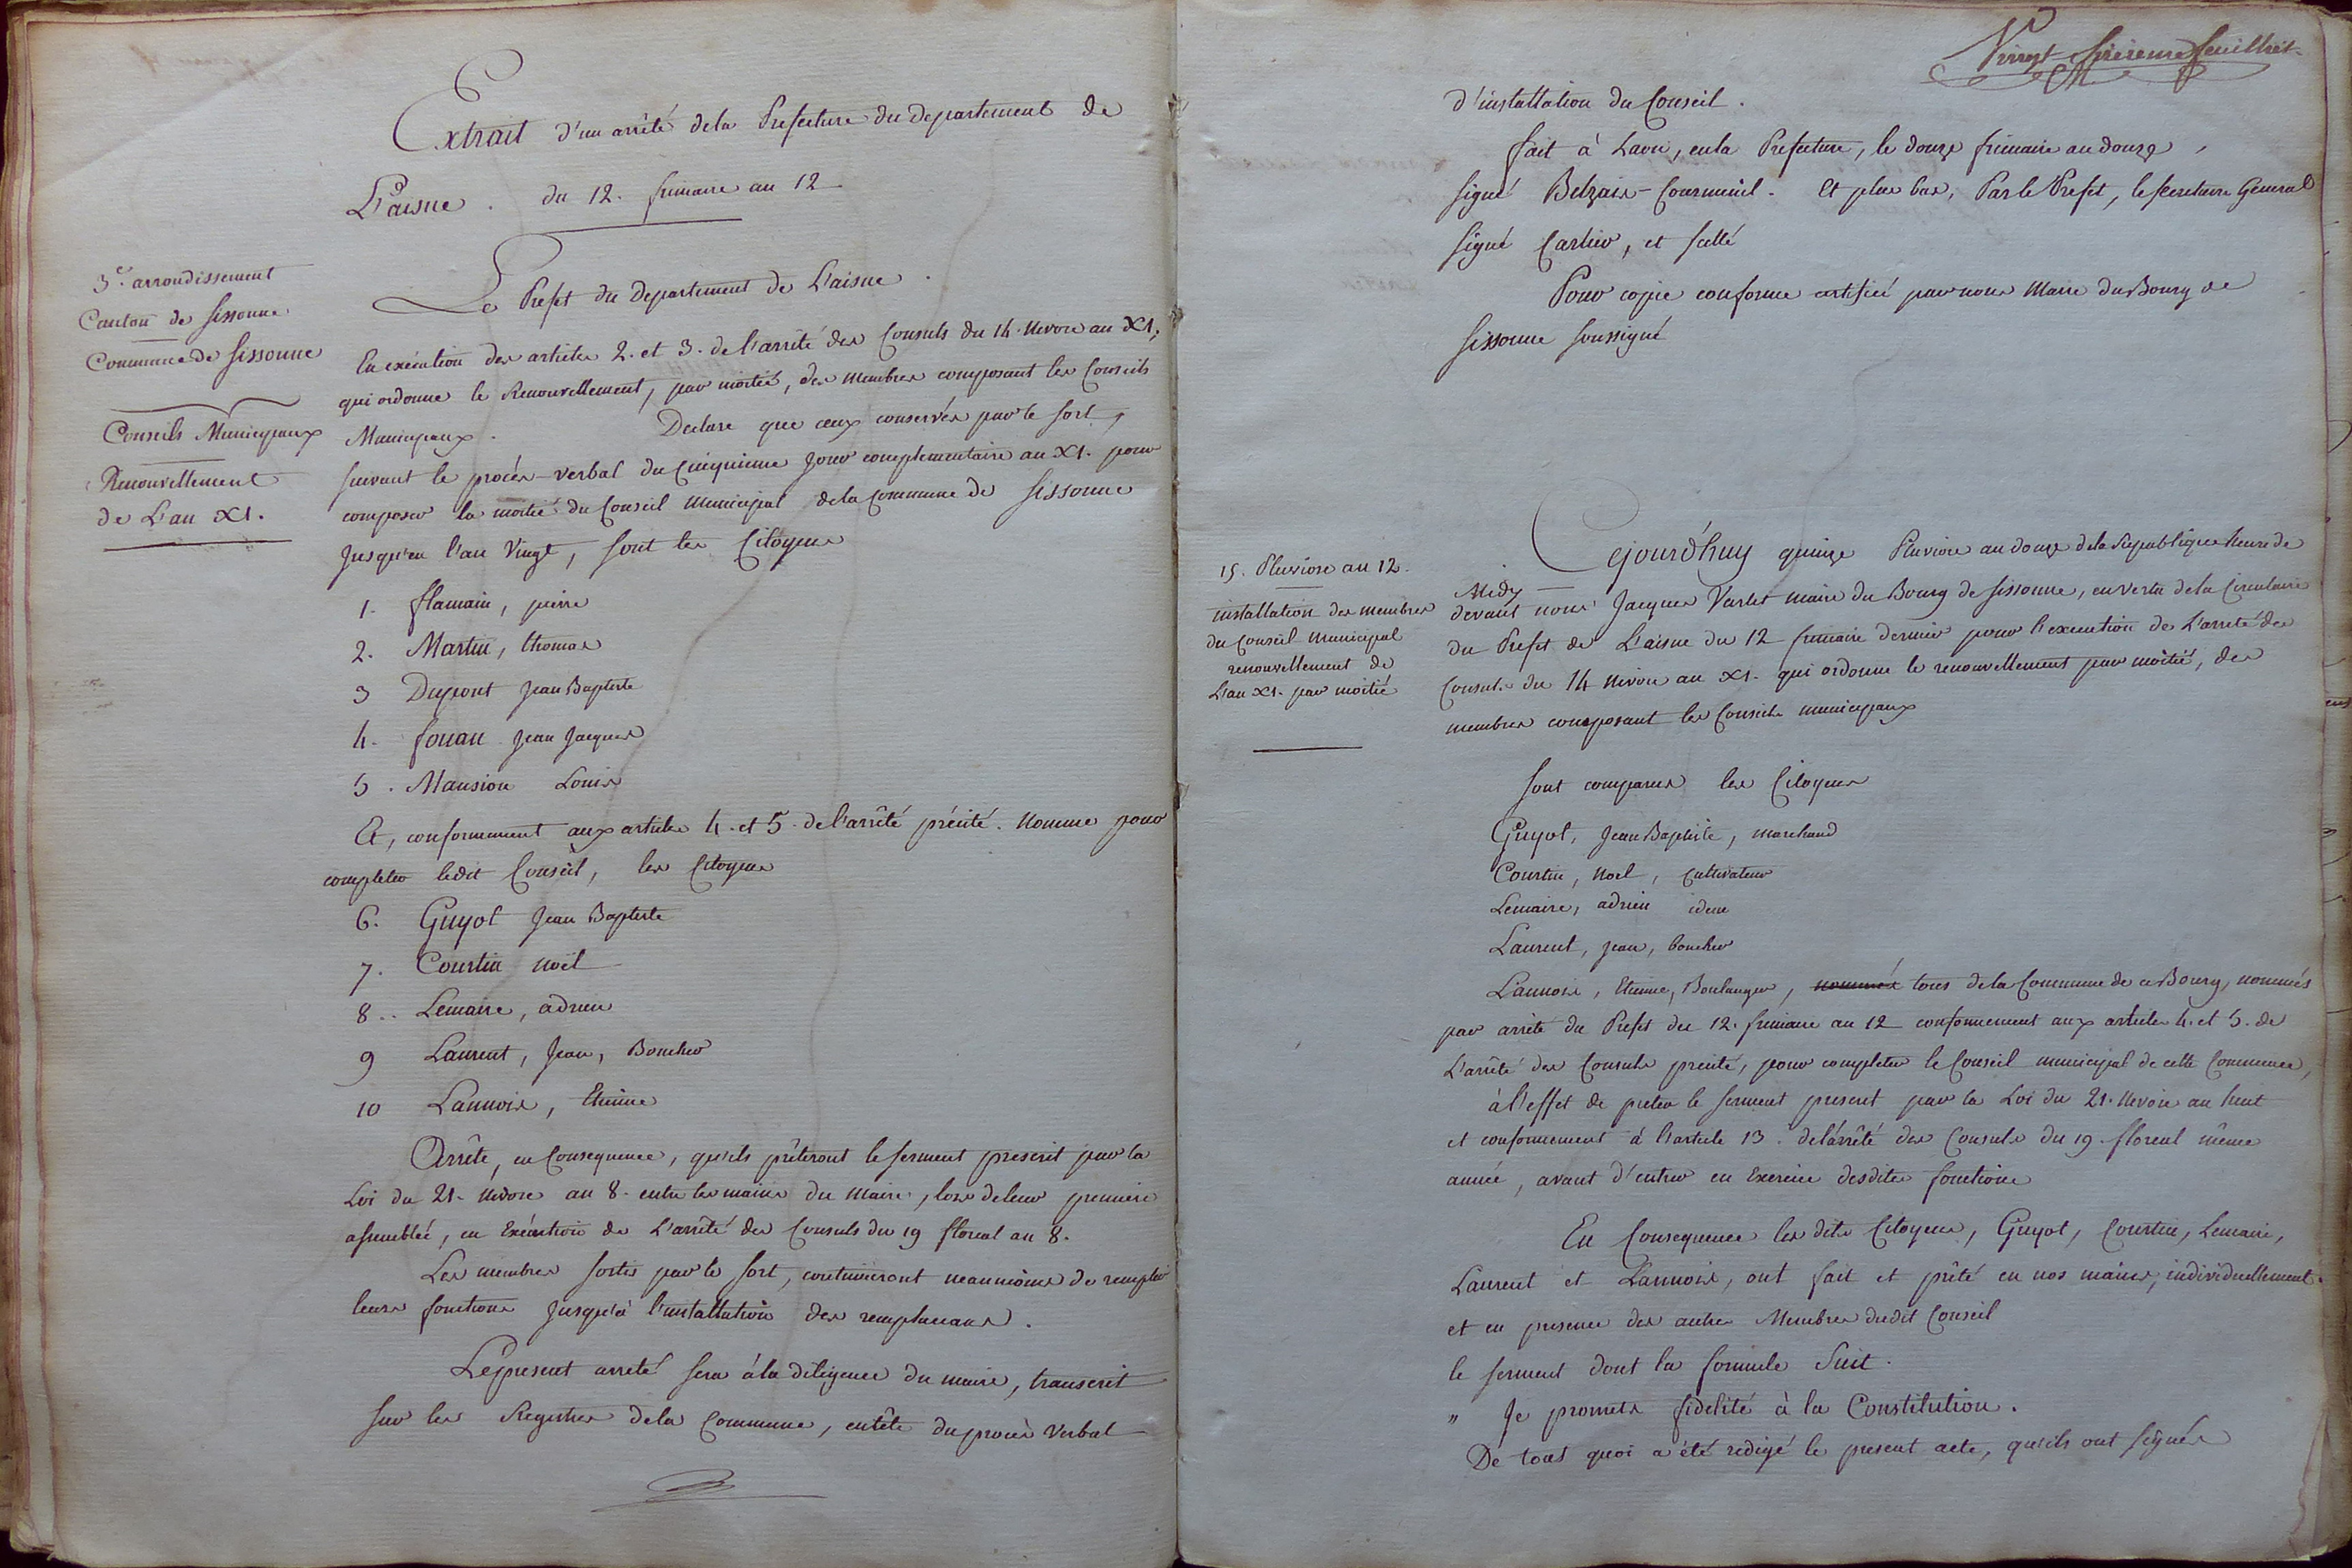 Extrait d'un arrêté dela Prefecture du departement de
L'aisne . du 12. frimaire an 12
3e. arrondissement
Canton de Sissonne
Commune de Sissonne
Conseils Municipaux
Renouvellement
de L'an XI.
Le Prefet du Departement de L'aisne .
En exécution des articles 2. et 3. de l'arrêté des Consuls du 14. Nivose an XI,
qui ordonne le Renouvellement, par moitié, des Membres composant les Conseils
Municipaux . Declare que ceux conservés par le sort,
suivant le procès-verbal du Cinquieme Jour complementaire an XI. pour
composer la moitié du Conseil Municipal dela Commune de Sissonne
Jusqu'en l'an Vingt, sont les Citoyens
1. flamain, pierre
2. Martin, thomas
3 Dupont Jean Baptiste
4. fouan Jean Jacques
5. Mansion Louis
Et, conformement aux articles 4. et 5. de l'arrêté précité. Nomme pour
completer ledit Conseil, les Citoyens
6. Guyot Jean Baptiste
7. Courtin Noël
8.. Lemaire, adrien
9 Laurent, Jean, Boucher
10 Lannois, Etienne
Arrête, en Consequence, qu'ils prêteront le serment prescrit par la
Loi du 21. Nivose an 8. entre les mains du Maire, lors deleur premiere
assemblée, en Exécution de L'arrêté des Consuls du 19 floreal an 8.
Les membres sortis par le sort, continueront neanmoins de remplir
leurs fonctions Jusqu'à l'installation des remplacans .
Le present arreté sera à la diligence du maire, transcrit
sur les Registres dela Commune, entête du procès verbal
Vingt sixieme feuillet
d'installation du Conseil .
fait à Laon, en la Prefecture, le douze frimaire an douze ,
signé Belzais-Courmenil. Et plus bas, Par le Prefet, le secretaire Général
signé Carlier, et scellé
Pour copie conforme certifiée par nous Maire du Bourg de
Sissonne soussigné
15. Pluviose an 12.
installation des membres
du Conseil Municipal
renouvellement de
L'an XI. par moitié
Cejourd'huy quinze Pluviose an douze dela Republique heure de
Midy
devant nous Jacques Varlet maire du Bourg de Sissonne, en vertu dela Circulaire
du Prefet de L'aisne du 12 frimaire dernier pour l'execution de L'arreté des
Consuls du 14 Nivose an XI. qui ordonne le renouvellement par moitié, des
membres composant les Conseils municipaux
sont comparus les Citoyens
Guyot, Jean Baptiste, marchand
Courtin, Noel, Cultivateur
Lemaire, adrien idem
Laurent, Jean, boucher
Lannois, Etienne, Boulanger, nommés tous dela Commune de ce Bourg, nommés
par arrêté du Prefet du 12. frimaire an 12 conformement aux articles 4. et 5. de
L'arrêté des Consuls précité, pour completer le Conseil municipal de cette Commune,
à l'effet de preter le serment prescrit par la Loi du 21. Nivose an huit
et conformement à l'article 13. del'arrêté des Consuls du 19. floreal même
année, avant d'entrer en Exercice desdites fonctions
En Consequence lesdits Citoyens, Guyot, Courtin, Lemaire,
Laurent et Lannois, ont fait et prêté en nos mains, individuellement
et en presence des autres Membres dudit Conseil
le serment dont la formule Suit.
" Je promets fidelité à la Constitution.
De tous quoi a été redigé le present acte, qu'ils ont signés